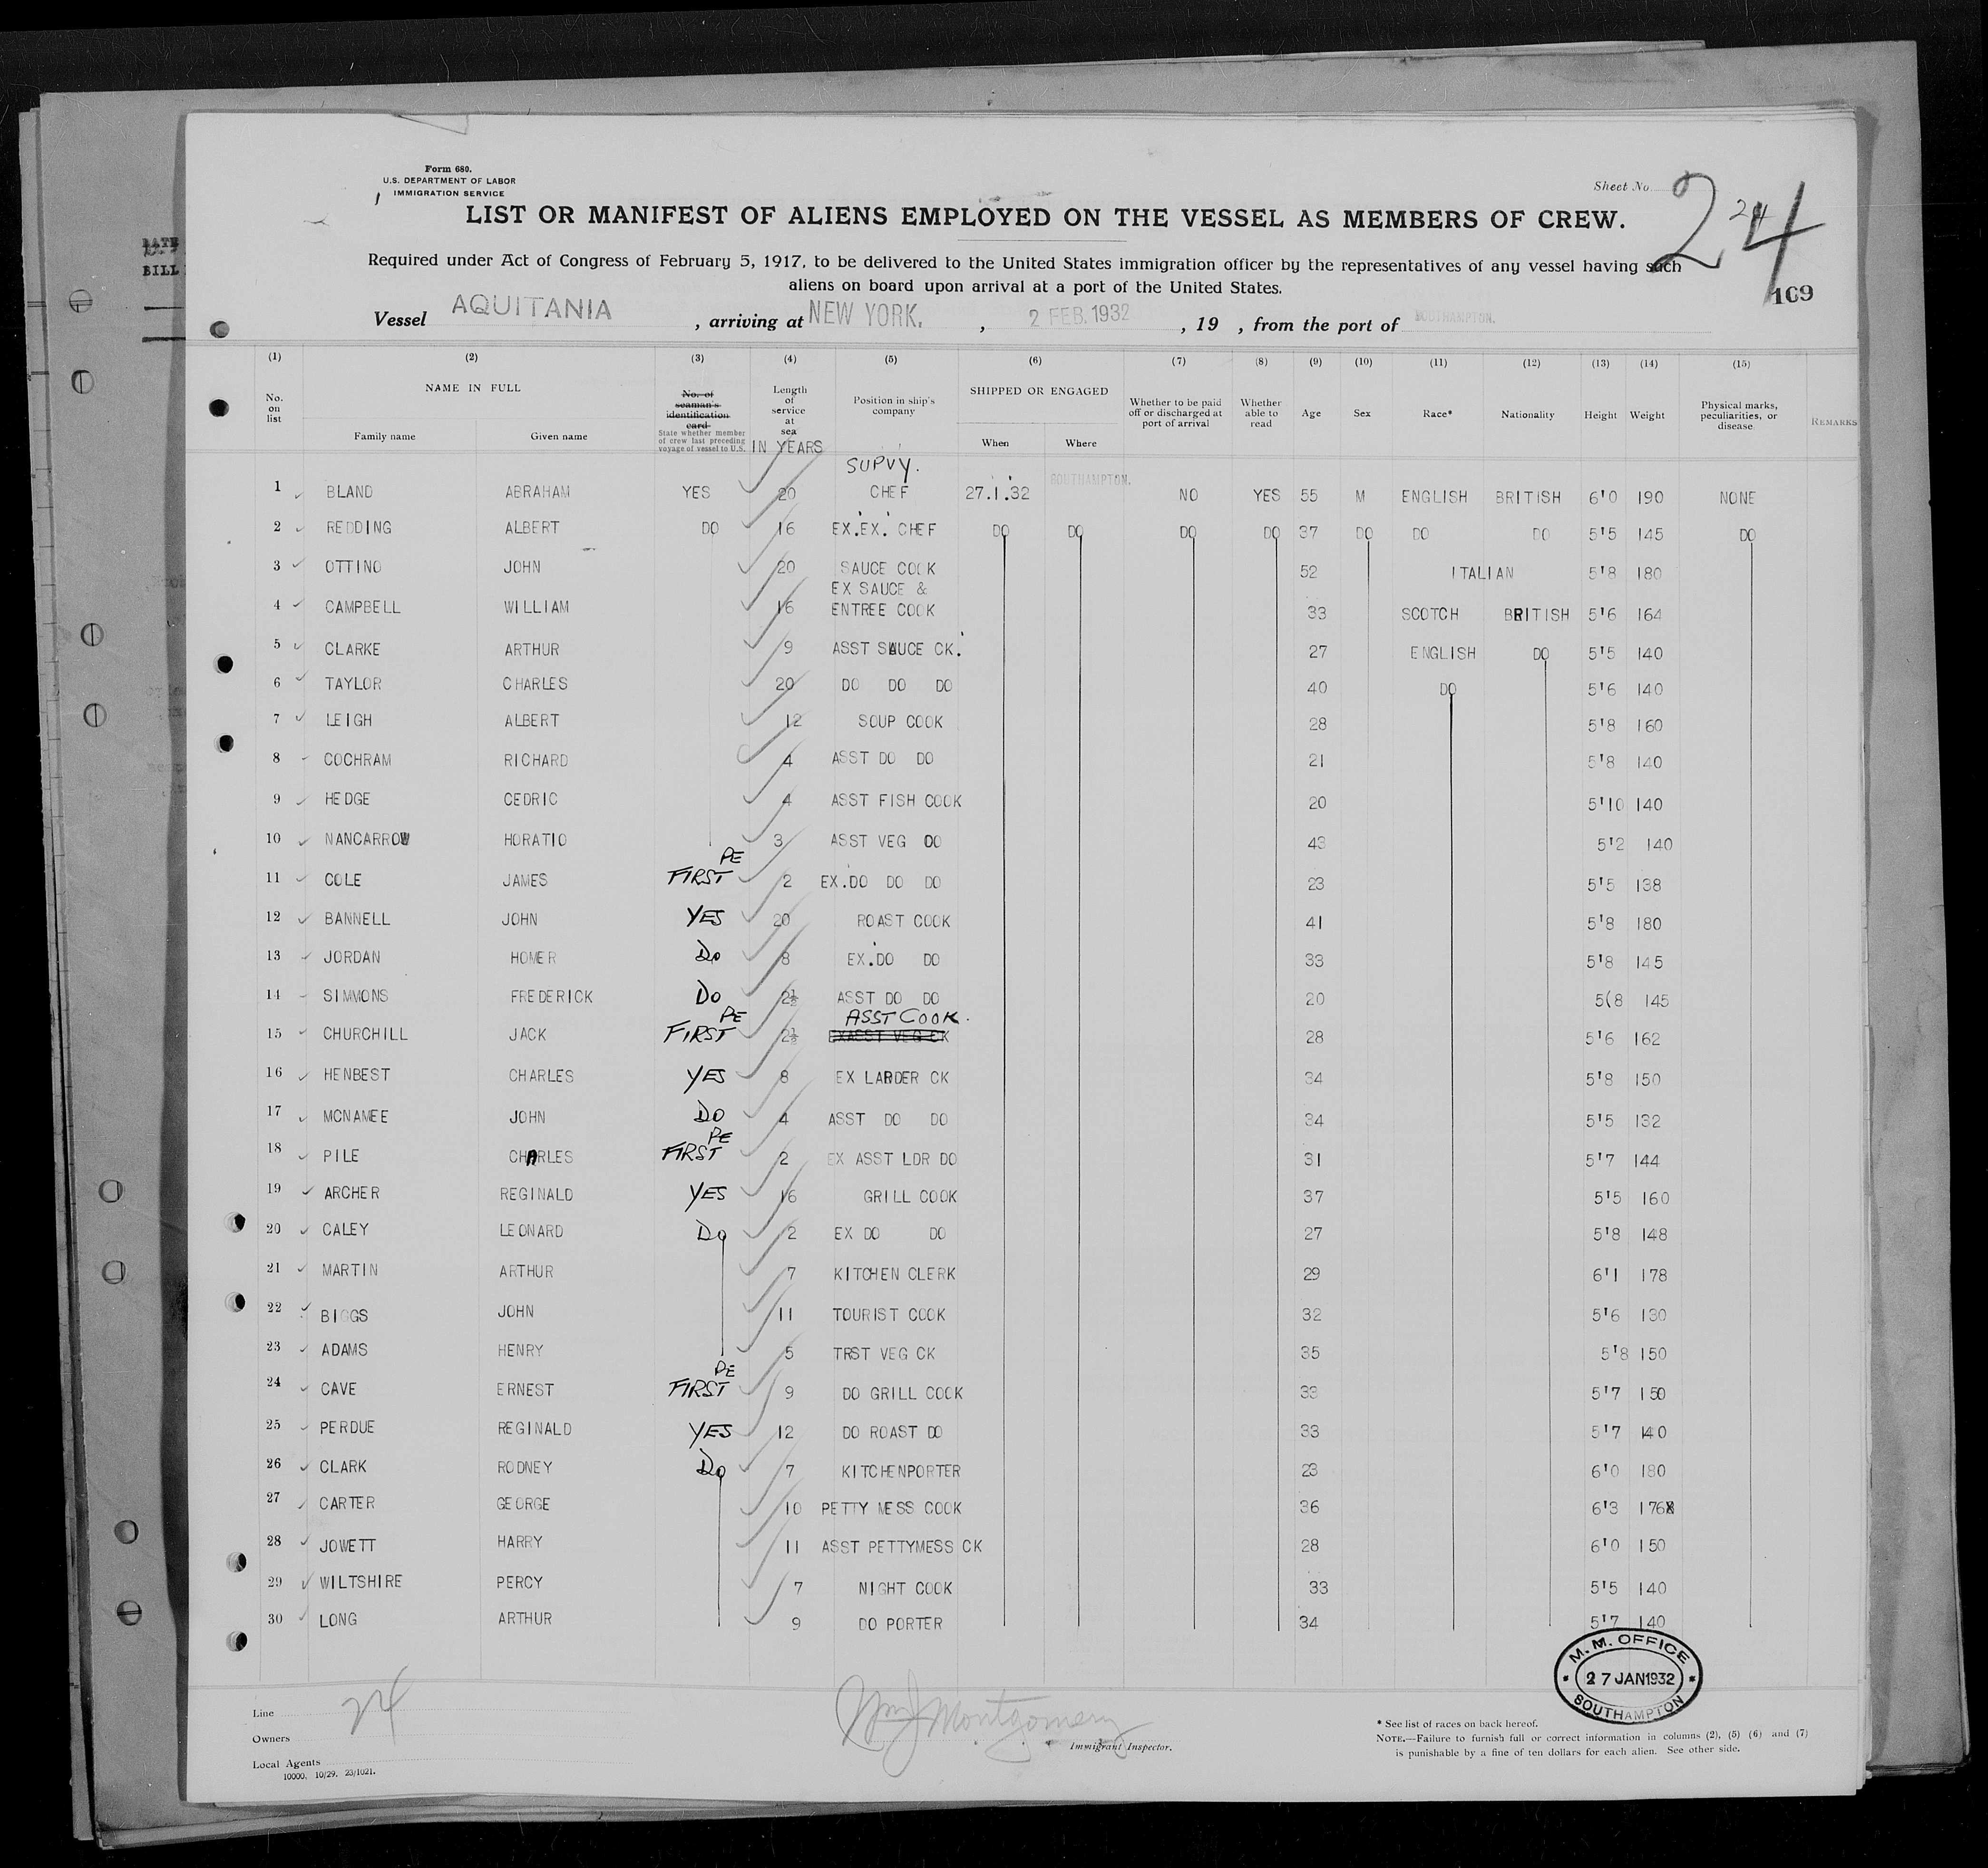 Form 680.
U.S. DEPARTMENT OF LABOR
IMMIGRATION SERVICE
Sheet No. 24
24
LIST OR MANIFEST OF ALIENS EMPLOYED ON THE VESSEL AS MEMBERS OF CREW.
Required under Act of Congress of February 5, 1917, to be delivered to the United States immigration officer by the representatives of any vessel having such
aliens on board upon arrival at a port of the United States.
169
Vessel AQUITANIA , arriving at NEW YORK. , 2 FEB. 1932 , 19 , from the port of SOUTHAMPTON.
DATE
BILL
(1) (2) (3) (4) (5) (6) (7) (8) (9) (10) (11) (12) (13) (14) (15)
No. on list
NAME IN FULL
Family name Given name
No. of seaman's identification card
State whether member of crew last preceding voyage of vessel to U.S.
Length of service at sea
IN YEARS
Position in ship's company
SHIPPED OR ENGAGED
When Where
Whether to be paid off or discharged at port of arrival
Whether able to read
Age Sex Race* Nationality Height Weight
Physical marks, peculiarities, or disease
REMARKS
SUPVY.
1 BLAND ABRAHAM YES 20 CHEF 27.1.32 SOUTHAMPTON. NO YES 55 M ENGLISH BRITISH 6'0 190 NONE
2 REDDING ALBERT DO 16 EX.EX. CHEF DO DO DO DO 37 DO DO DO 5'5 145 DO
3 OTTINO JOHN 20 SAUCE COOK 52 ITALIAN 5'8 180
EX SAUCE &
4 CAMPBELL WILLIAM 16 ENTREE COOK 33 SCOTCH BRITISH 5'6 164
5 CLARKE ARTHUR 9 ASST SAUCE CK. 27 ENGLISH DO 5'5 140
6 TAYLOR CHARLES 20 DO DO DO 40 DO 5'6 140
7 LEIGH ALBERT 12 SOUP COOK 28 5'8 160
8 COCHRAM RICHARD 4 ASST DO DO 21 5'8 140
9 HEDGE CEDRIC 4 ASST FISH COOK 20 5'10 140
10 NANCARROW HORATIO 3 ASST VEG DO 43 5'2 140
PE
11 COLE JAMES FIRST 2 EX.DO DO DO 23 5'5 138
12 BANNELL JOHN YES 20 ROAST COOK 41 5'8 180
13 JORDAN HOMER Do 8 EX.DO DO 33 5'8 145
14 SIMMONS FREDERICK Do 2½ ASST DO DO 20 5(8 145
PE ASST COOK.
15 CHURCHILL JACK FIRST 2½ EXASST VEG CK 28 5'6 162
16 HENBEST CHARLES YES 8 EX LARDER CK 34 5'8 150
17 MCNAMEE JOHN Do 4 ASST DO DO 34 5'5 132
PE
18 PILE CHARLES FIRST 2 EX ASST LDR DO 31 5'7 144
19 ARCHER REGINALD YES 16 GRILL COOK 37 5'5 160
20 CALEY LEONARD Do 2 EX DO DO 27 5'8 148
21 MARTIN ARTHUR 7 KITCHEN CLERK 29 6'1 178
22 BIGGS JOHN 11 TOURIST COOK 32 5'6 130
23 ADAMS HENRY 5 TRST VEG CK 35 5'8 150
PE
24 CAVE ERNEST FIRST 9 DO GRILL COOK 33 5'7 150
25 PERDUE REGINALD YES 12 DO ROAST DO 33 5'7 140
26 CLARK RODNEY Do 7 KITCHENPORTER 23 6'0 180
27 CARTER GEORGE 10 PETTY MESS COOK 36 6'3 176
28 JOWETT HARRY 11 ASST PETTYMESS CK 28 6'0 150
29 WILTSHIRE PERCY 7 NIGHT COOK 33 5'5 140
30 LONG ARTHUR 9 DO PORTER 34 5'7 140
M. M. OFFICE
27 JAN 1932
SOUTHAMPTON
Line
24
Owners
Local Agents
10000. 10/29. 23/1021.
Wm J Montgomery
Immigrant Inspector.
* See list of races on back hereof.
NOTE.—Failure to furnish full or correct information in columns (2), (5) (6) and (7)
is punishable by a fine of ten dollars for each alien. See other side.